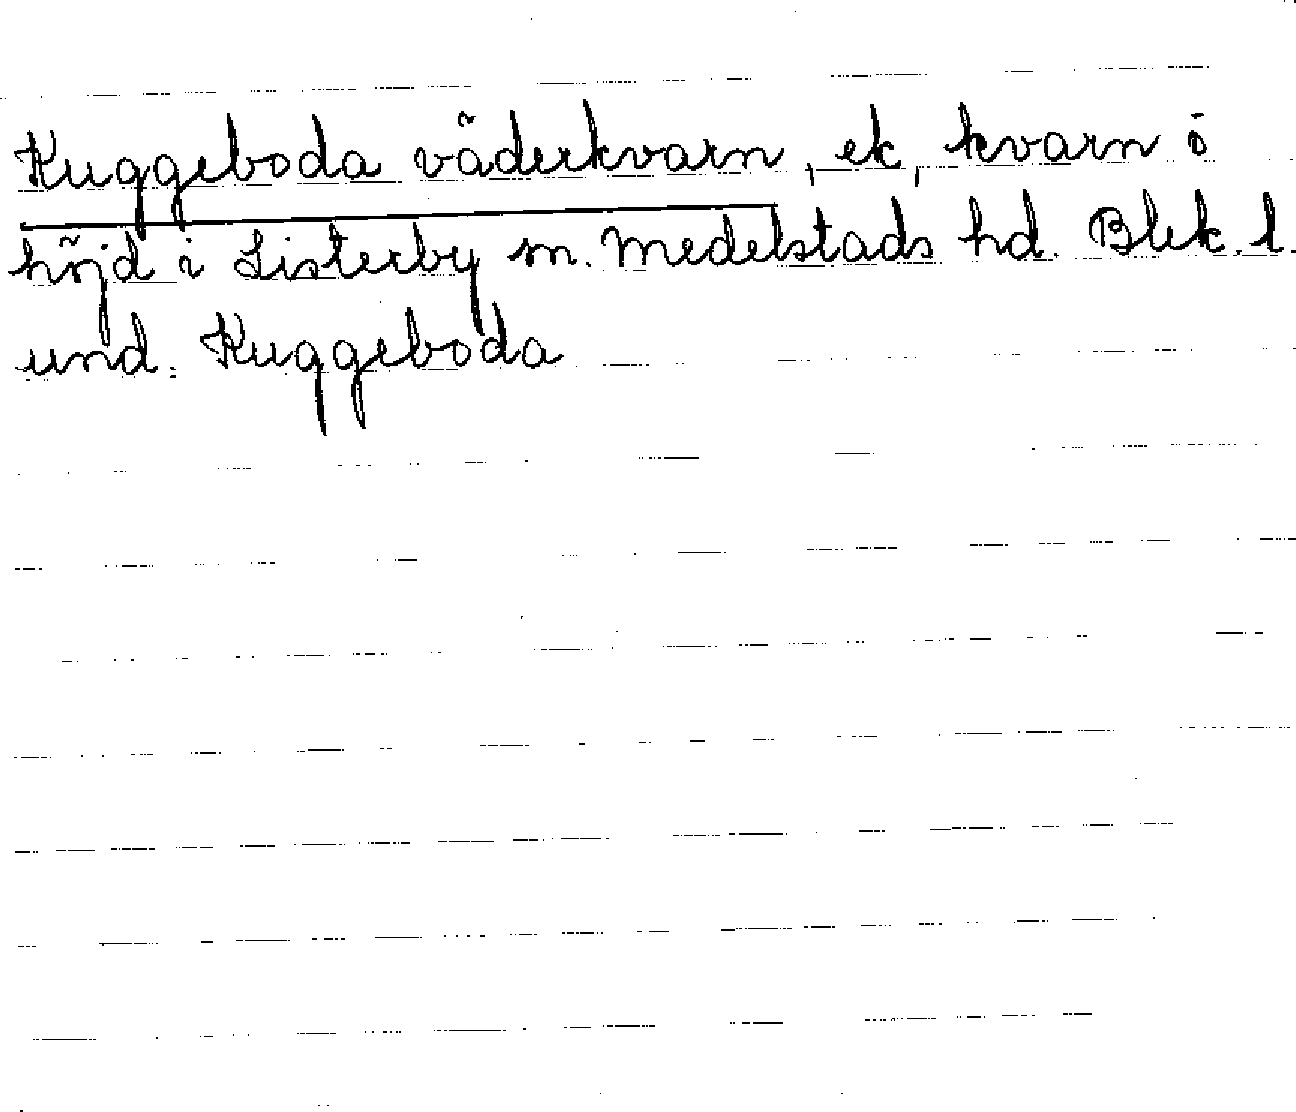 Kuggeboda väderkvarn, ek, kvarn i
höjd i Listerby sn. Medelstads hd. Blek. l.
und. Kuggeboda